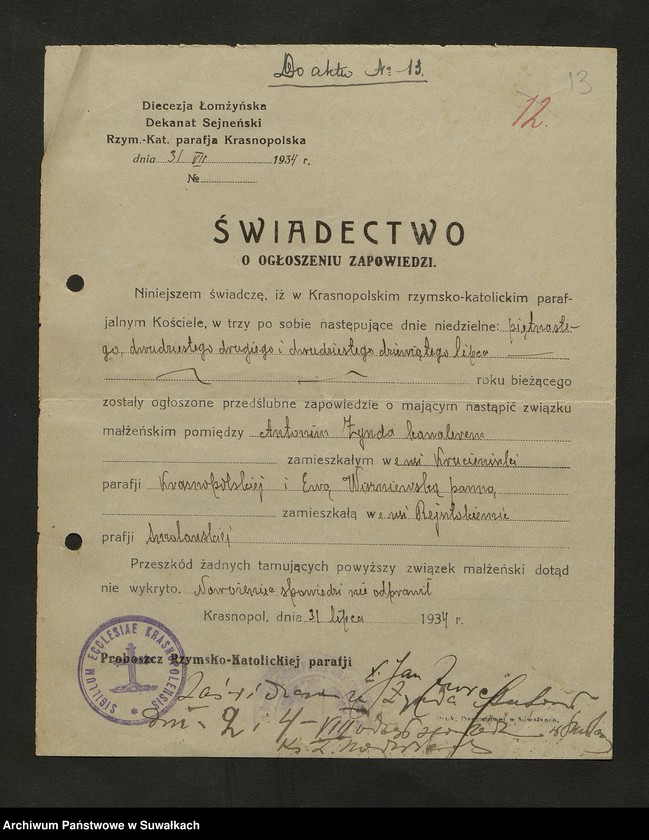 Do aktu No 13.
13
12.
Diecezja Łomżyńska
Dekanat Sejneński
Rzym.-Kat. parafja Krasnopolska
dnia 31 VII 1934 r.
№
ŚWIADECTWO
O OGŁOSZENIU ZAPOWIEDZI.
Niniejszem świadczę, iż w Krasnopolskim rzymsko-katolickim paraf-
jalnym Kościele, w trzy po sobie następujące dnie niedzielne: piętnaste-
go, dwudziestego drugiego i dwudziestego dziewiątego lipca
roku bieżącego
zostały ogłoszone przedślubne zapowiedzie o mającym nastąpić związku
małżeńskim pomiędzy Antonim Zynda kawalerem
zamieszkałym we wsi
parafji Krasnopolskiej i Ewą Wiszniewską panną
zamieszkałą we wsi
prafji
Przeszkód żadnych tamujących powyższy związek małżeński dotąd
nie wykryto. Nowożeniec spowiedzi nie odprawił
Krasnopol, dnia 31 lipca 1934 r.
Proboszcz Rzymsko-Katolickiej parafji
SIGILLUM ECCLESIAE KRASNOPOLENSIS
X. Jan
Zaświadczam Zynda
dn. 2 i 4-VIII
Druk. w Suwałkach.
Ks.
Archiwum Państwowe w Suwałkach